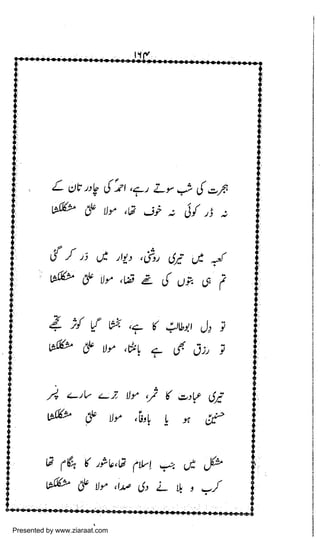 ۱۶۴
ہجرت کی شب سوتے رہے، احمدؐ کی چادر تان کے
نہ ڈر کوئی نہ خوف تھا، مولا علیؑ مشکلکشا
کعبہ میں تیری روشنی، دیوار میں در کر گئی
تم ہی بتوں کی تھے قضا، مولا علیؑ مشکلکشا
تو دل ابوطالبؑ کا ہے، بخشا گیا کوثر تجھے
تو رزق بھی ہے بانٹتا، مولا علیؑ مشکلکشا
تیری عبادت کا ثمر، مولا ترے سارے پسر
حسنینؑ ہو یا باوفاؑ، مولا علیؑ مشکلکشا
مشکل میں جب اسلام تھا، عاشور کا ہنگام تھا
کرب و بلا نے دی صدا، مولا علیؑ مشکلکشا
Presented by www.ziaraat.com